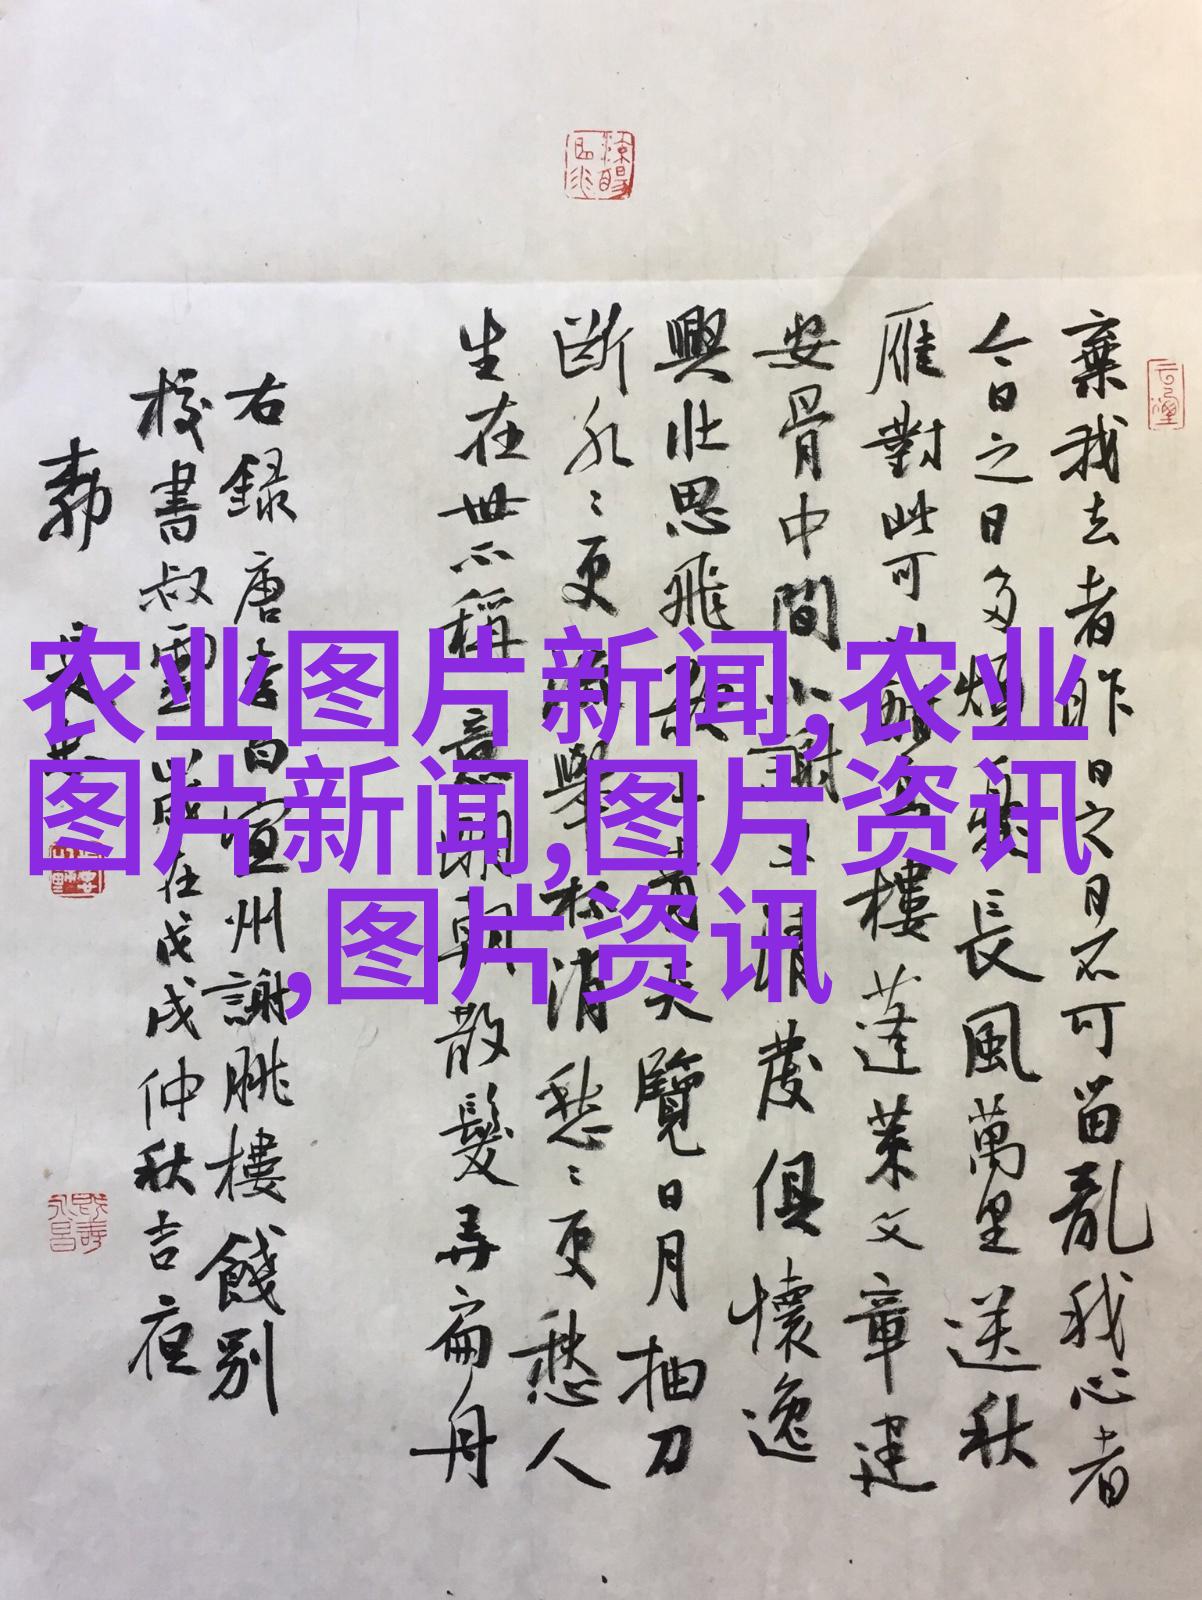 棄我去者昨日之日不可留亂我心者
今日之日多煩長風萬里送秋
雁對此可樓蓬萊文章建
安骨中間小謝又清發俱懷逸
興壯思飛欲天覽日月抽刀
斷水ミ更舉杯消愁ミ更愁人
生在世不稱意明朝散髮弄扁舟
右録唐李白宣州謝朓樓餞別
校書叔雲歲在戊戌仲秋吉夜
农业图片新闻,农业
图片新闻,图片资讯
,图片资讯